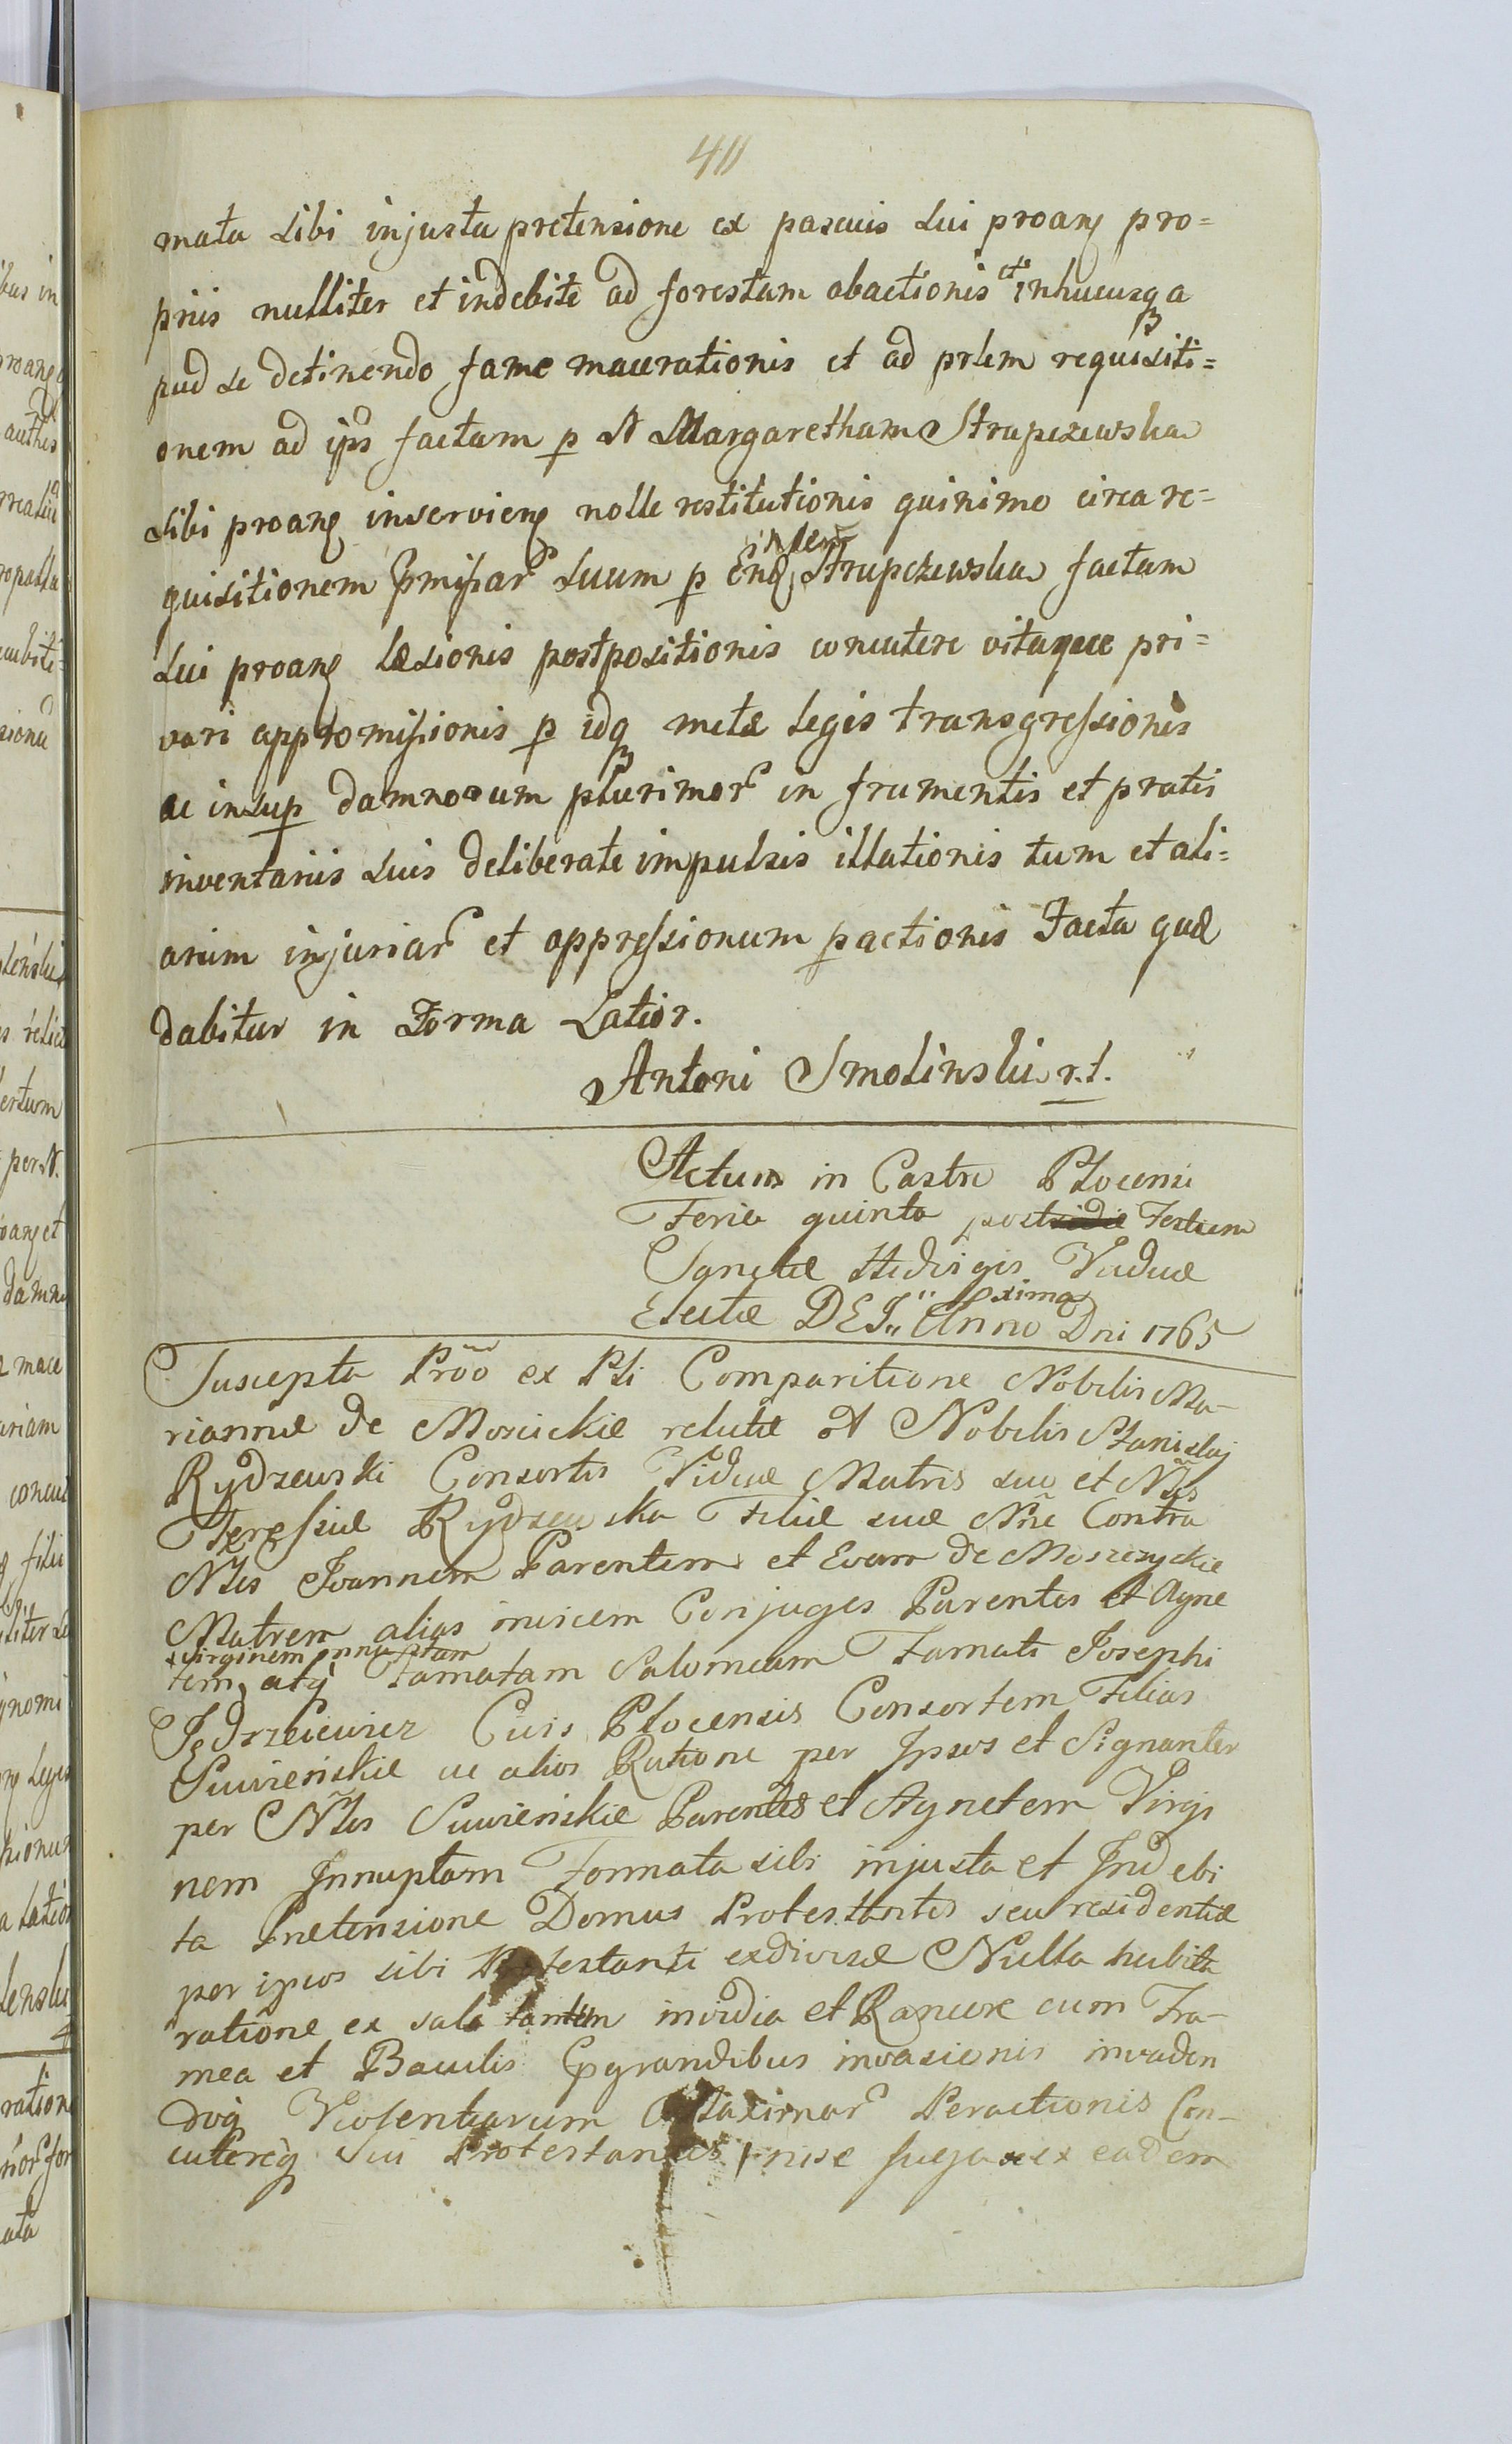 40
mata sibi injusta pretensione ex pascuis sui proanę pro=
priis nulliter et indebite ad forestam abactionis et inhucusq a
pud se detinendo fame macerationis et ad prlem requisiti=
onem ad ips factam p N Margaretham Strupczewska
sibi proanę inservienę nolle restitutionis quinimo circa re=
quisitionem pmissar suum p Endę indem Strupczewska factam
sui proanę læsionis postpositionis concutere vitaque pri=
vari appromissionis p idq metæ legis transgressionis
ac insup damnorum plurimor in frumentis et pratis
inventariis suis deliberate impulsis illationis tum et ali=
arum injuriar et oppressionum pactionis Facta quæ
dabitur in Forma Latior.
Antoni Smolinski r.t.
Actum in Castro Plocensi
Feria quinta post Festum
Sanctæ Hedvigis Viduæ
Electæ DEI pxima Anno Dni 1765
Suscepta Prõõ ex Pti Comparitione Nobilis Ma-
riannæ de Mosicckie relictæ N Nobilis Stanislaj
Rydzewski Consortis Viduæ Matris suo et Nlis
Theressiæ Rydzewska Filiæ suæ Nñe Contra
Nles Joannem Parentem et Evam de Moszczyckie
Matrem alias invicem Conjuges Parentes et Agne
tem virginem innuptam atq famatam Salomeam Famati Josephi
Jędrzeiewicz Civis Plocensis Consortem Filias
Suwieńskie ac alios Ratione per Ipsos et Signanter
per Nles Suwieńskie Parentes et Agnetem Virgi
nem Innuptam Formata sibi injusta et Indebi
ta Prætensione Domus Protestantes seu residentiæ
per ipsos sibi Protestanti exdivisæ Nulla habita
ratione ex sala tantum invidia et Rancore cum Fra-
mea et Baculis Pgrandibus invasionis invaden
doq Violentiarum Maximar Peractionis Con-
cutereq sui Protestantes nise fuga ex eadem